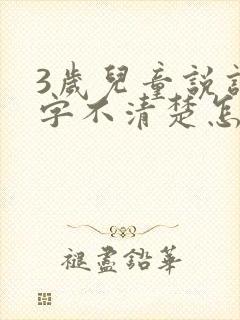 3歲兒童說
字不清楚怎
褪盡鉛華